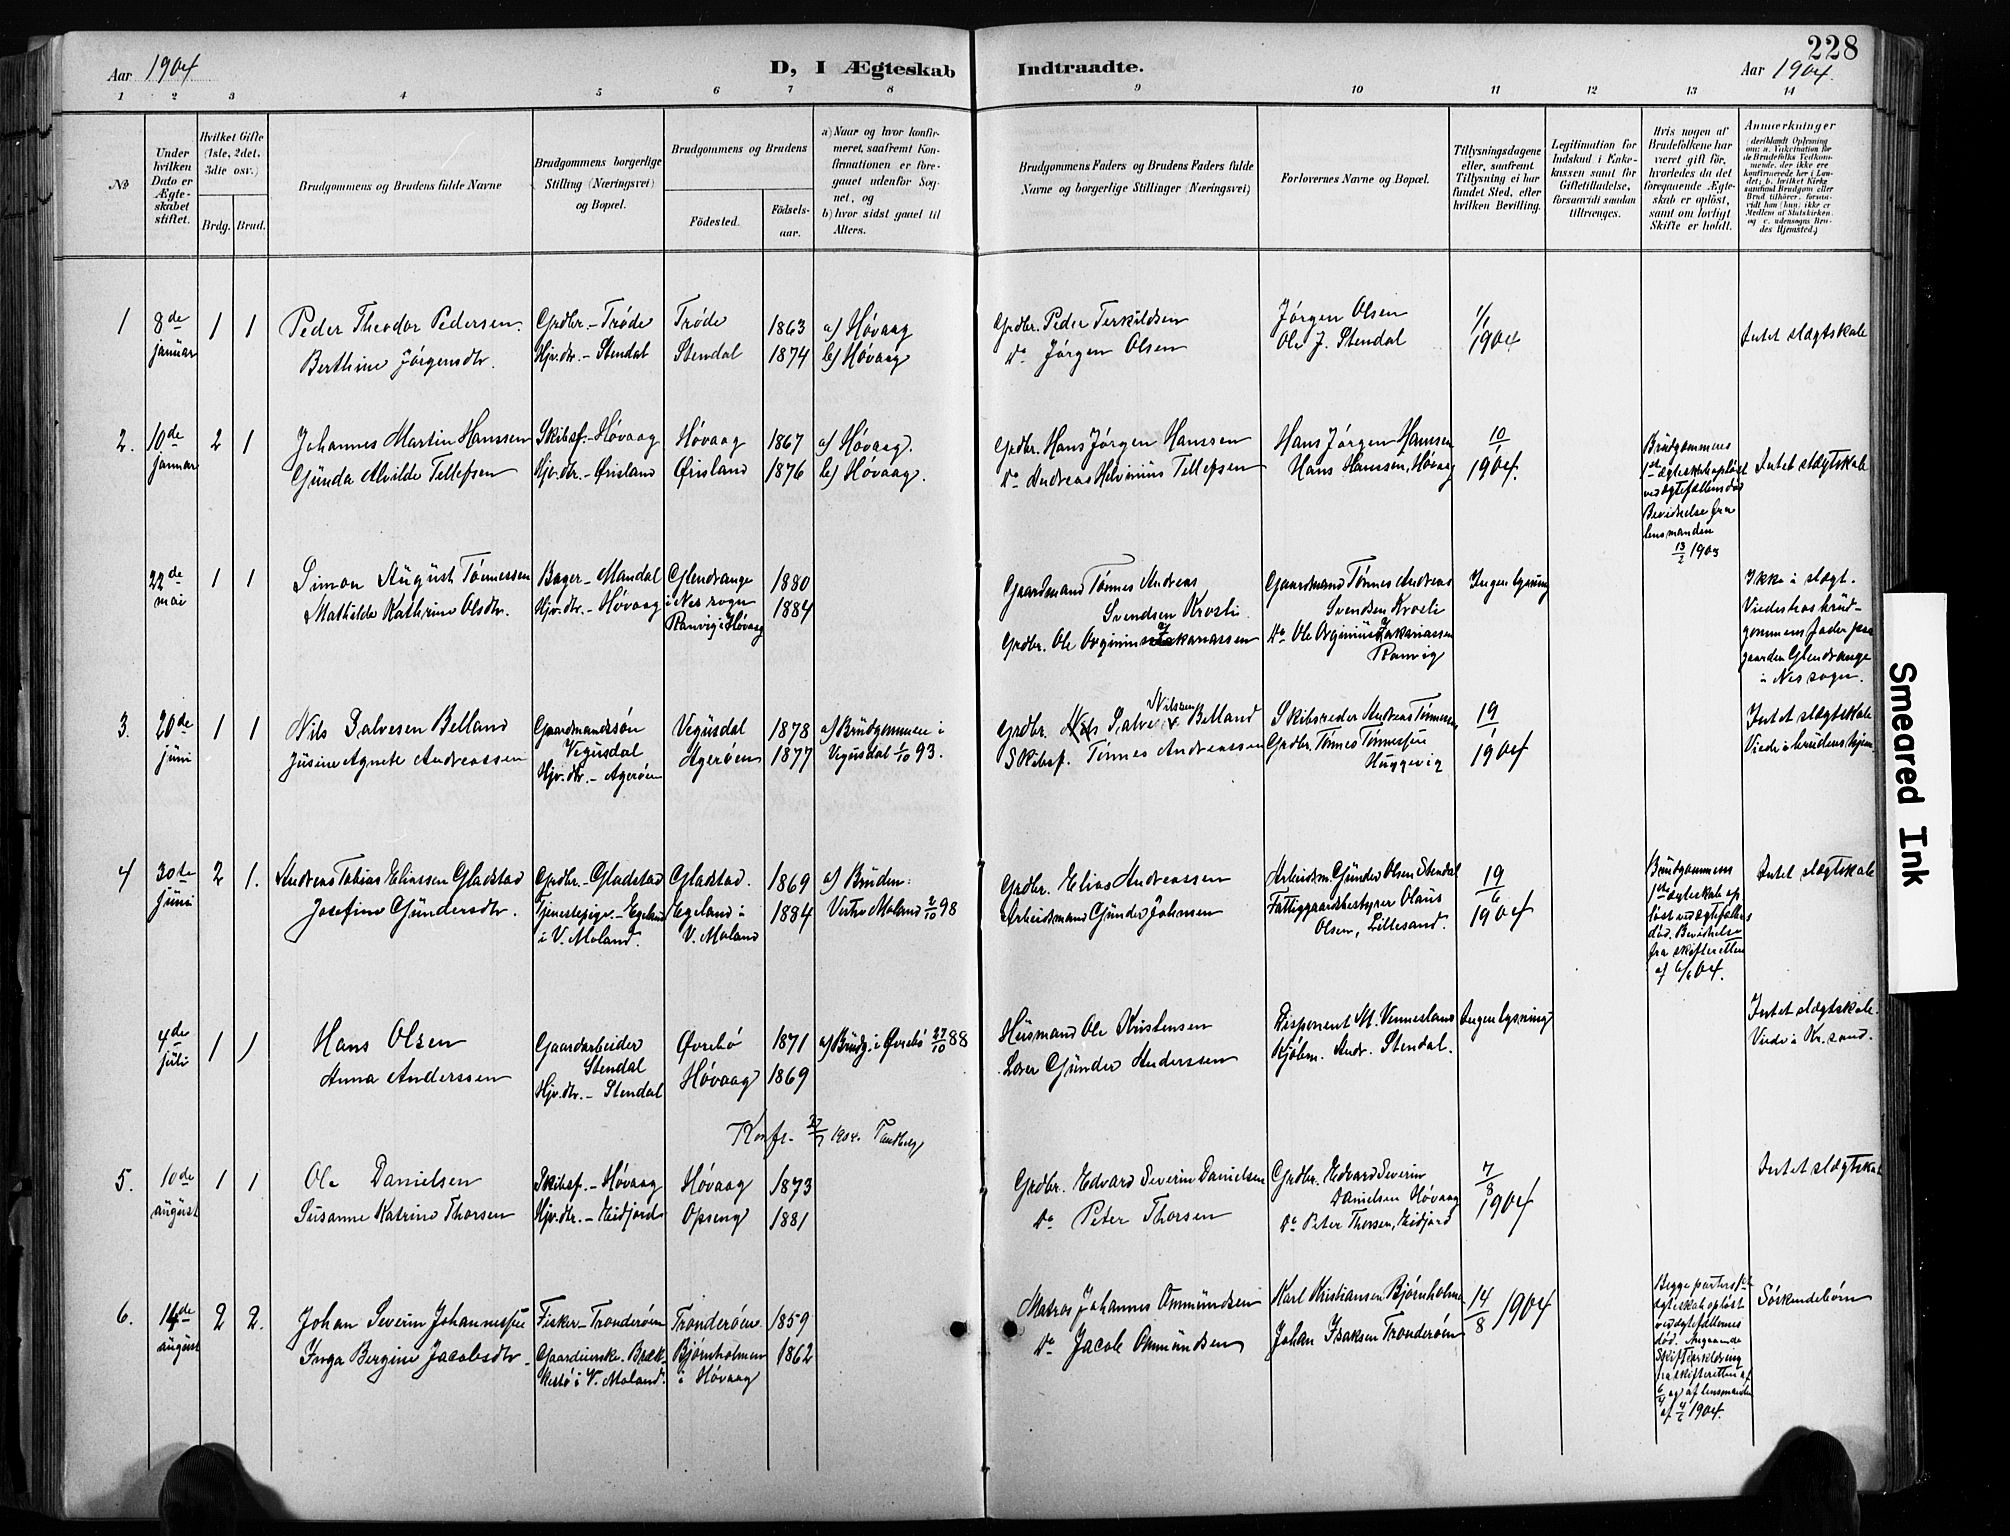 228
Aar 1904
D, I Ægteskab
Indtraadte.
Aar 1904.
1 2 3 4 5 6 7 8 9 10 11 12 13 14
No
Under hvilken Dato er Ægteskabet stiftet.
Hvilket Gifte (1ste, 2det, 3die osv.)
Brdg. Brud.
Brudgommens og Brudens fulde Navne
Brudgommens borgerlige Stilling (Næringsvei) og Bopæl.
Brudgommens og Brudens
Fødested.
Fødselsaar.
a) Naar og hvor konfirmeret, saafremt Konfirmationen er foregaaet udenfor Sognet, og
b) hvor sidst gaaet til Alters.
Brudgommens Faders og Brudens Faders fulde Navne og borgerlige Stillinger (Næringsvei)
Forlovernes Navne og Bopæl.
Tillysningsdagene eller, saafremt Tillysning ei har fundet Sted, efter hvilken Bevilling.
Legitimation for Indskud i Enkekassen samt for Giftetilladelse, forsaavidt saadan tiltrænges.
Hvis nogen af Brudefolkene har været gift før, hvorledes da det foregaaende Ægteskab er opløst, samt om lovligt Skifte er holdt.
Anmerkninger
1 8de januar 1 1
Peder Theodor Pedersen. Grdbr. – Trøde Trøde 1863 a) Høvaag
Berthine Jörgensdtr. Hjv. dtr. – Stendal Stendal 1874 b) Høvaag
Grdbr. Peder Terkildsen Jørgen Olsen 1/1
Do Jørgen Olsen Ole J. Stendal 1904
Intet slægtskab
2. 10de januar 2 1
Johannes Martin Hanssen Skibsf. – Høvaag Høvaag 1867 a) Høvaag.
Gunda Alvilde Tellefsen Hjv. dtr. – Ørisland Ørisland 1876 b) Høvaag.
Grdbr. Hans Jørgen Hanssen Hans Jørgen Hanssen 10/1
Do Andreas Tellefsen Hans Hanssen, Høvaag 1904.
Brudgommens
1ste ægteskab opløst
ved ægtefællens død
Bevidnelse fra
lensmanden
13/2 1903
Intet slægtskab
22de mai 1 1
Simon August Tönnessen Bager – Mandal Glendrange 1880
Mathilde Kathrine Olsdtr. Hjv. dtr. – Høvaag i Nes sogn 1884
Ranvig i Høvaag
Gaardmand Tønnes Andreas Gaardmand Tønnes Andreas Ingen lysning
Svendsen Krosli Svendsen Krosli
Ranvig
Ikke i slægt.
Viedes hos brud-
gommens fader paa
gaarden Glendrange
i Nes sogn.
3. 20de juni 1 1
Nils Salvesen Belland Gaardmandssøn Vegusdal 1878 a) Brudgommen i
Vegusdal Vegusdal 1/10 93.
Jusine Agnete Andreassen Hjv. dtr. – Agerøen Agerøen 1877
Nilsen
Grdbr. Salve Belland Skibsreder Andreas Tønnessen 19
Skibsf. Tønnes Andreassen Grdbr. Tønnes Tønnessen 1904
Intet slægtskab
Viede i brudens hjem
4 30te juni 2 1.
Andreas Tobias Eliassen Gladstad Grdbr. – Gladstad Gladstad. 1869 a) Bruden:
Josefine Gundersdtr. Tjenestepige. – Egeland Egeland i 1884 Vestre Moland 2/10 98
i V. Moland. V. Moland
Grdbr. Elias Andreassen Arbeidsm. Gunder Olsen Stendal 19/6
Arbeidsmand Gunder Johnsen Fattiggaardsbestyrer Olaus 1904
Olsen, Lillesand.
Brudgommens
1ste ægteskab op
løst ved ægtefællens
død. Bevidnelse
fra skifteretten
af 6/6 04.
Intet slægtskab
4de juli 1 1
Hans Olsen Gaardarbeider Øvrebö 1871 a) Brudg. i Øvrebö 27/10 88
Stendal
Anna Anderssen Hjv. dtr. – Stendal Høvaag 1869
Husmand Ole Kristensen Disponent M. Vennesland Ingen lysning
Gunder Anderssen Kjøbm. Andr. Stendal.
Intet slægtskab.
Viede i Kr. sand.
Konfr. 27/7 1904. Tandberg
5. 10de august 1 1
Ole Danielsen Skibsf. – Høvaag Høvaag 1873
Susanne Katrine Thorsen Hjv. dtr. – Eidjord Opseng 1881
Grdbr. Edvard Severin Danielsen Grdbr. Edvard Severin 7/8
Danielsen Høvaag
Do Peter Thorsen Do Peter Thorsen, Eidjord 1904
Intet slægtskab
6. 14de august 2 2.
Johan Severin Johannessen Fisker – Trønderøen Trønderøen 1859
Inga Bergine Jacobsdtr. Bræk- Bjørnholmen 1862
kestø i V. Moland. i Høvaag
Matros Johannes Ommundsen Karl Kristiansen Bjørnholmen 14/8 1904
Do Jacob Ommundsen Johan Isaksen Trønderøen
Begge parters 1ste
ægteskab opløst
ved ægtefællernes
død. Angaaende
skifteerklæring
fra skifteretten af
6/4 og af lensmanden
af 4/2 1904.
Søskendebørn
Smeared Ink